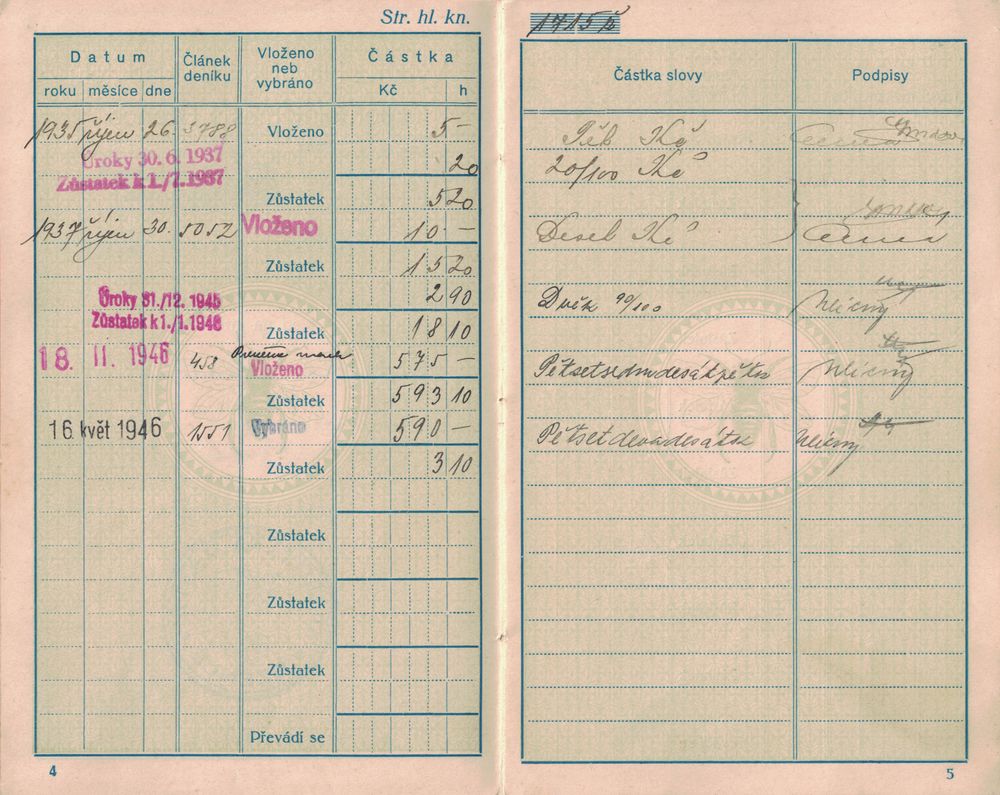 Str. hl. kn.
Datum Článek deníku Vloženo neb vybráno Částka
roku měsíce dne Kč h
1935 říjen 26. 3788 Vloženo 5 –
Úroky 30. 6. 1937 20
Zůstatek k 1./7. 1937
Zůstatek 5 20
1937 říjen 30. 5052 Vloženo 10 –
Zůstatek 15 20
Úroky 31./12. 1945 2 90
Zůstatek k 1./1. 1946
Zůstatek 18 10
18. II. 1946 458 Vloženo 575 –
Zůstatek 593 10
16. květ 1946 1551 Vybráno 590 –
Zůstatek 3 10
Zůstatek
Zůstatek
Zůstatek
Převádí se
4
1715
Částka slovy Podpisy
Pět Kč
20/100 Kč
Deset Kč
Dvěk 90/100
Pětsetsedmdesátpětk
Pětsetdevadesátk
5